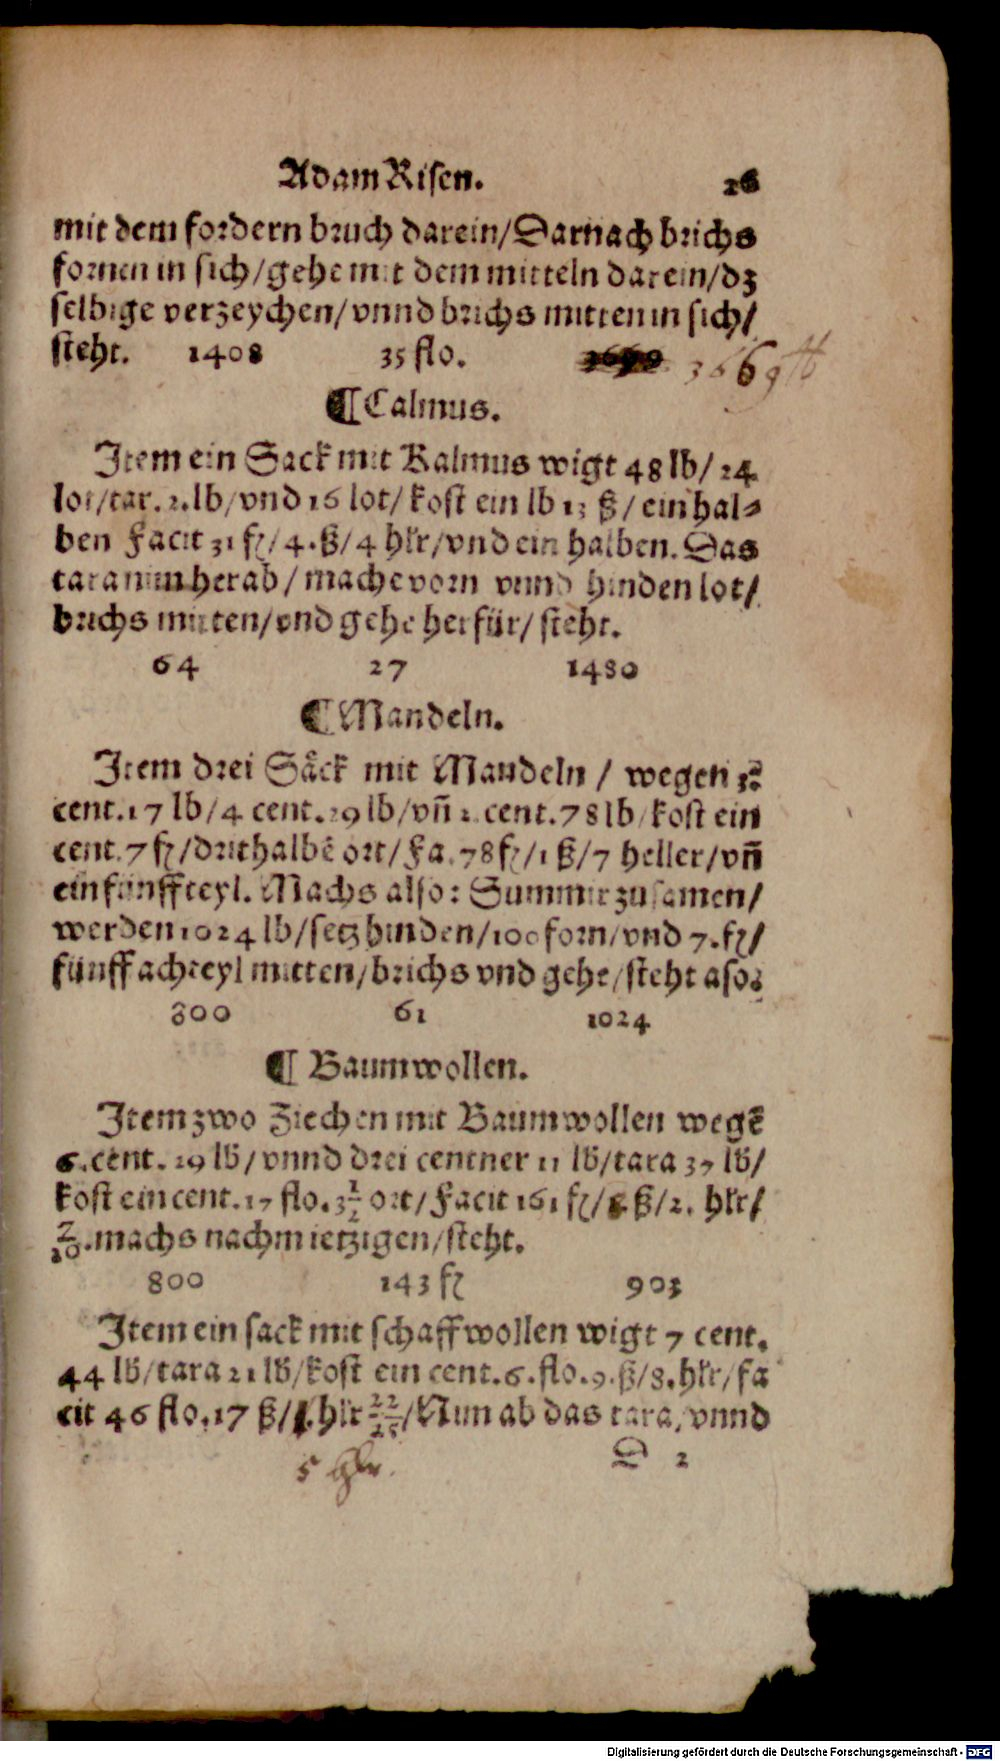 Adam Risen. 26
mit dem fordern bruch darein/Darnach brichs
fornen in sich/gehe mit dem mitteln darein/dz
selbige verzeychen/vnnd brichs mitten in sich/
steht. 1408 35 flo. 3669 lb
¶Calmus.
Item ein Sack mit Kalmus wigt 48 lb/24
lot/tar. 2.lb/vnd 16 lot/kost ein lb 13 ß/ein hal⸗
ben Facit 31 fl/4.ß/4 hlr/vnd ein halben. Das
tara nim herab/mache vorn vnnd hinden lot/
brichs mitten/vnd gehe herfür/steht.
64 27 1480
¶Mandeln.
Item drei Säck mit Mandeln/wegen 3.
cent.17 lb/4 cent.29 lb/vñ 2.cent.78 lb/kost ein
cent.7 fl/drithalbẽ ort/Fa.78 fl/1 ß/7 heller/vñ
ein fünffteyl. Machs also: Summir zusamen/
werden 1024 lb/setz hinden/100 forn/vnd 7.fl/
fünff achteyl mitten/brichs vnd gehe/steht aso:
800 61 1024
¶ Baumwollen.
Item zwo Ziechen mit Baumwollen wegẽ
6.cent.29 lb/vnnd drei centner 11 lb/tara 37 lb/
kost ein cent.17 flo.3 1/2 ort/Facit 161 fl/ ß/2. hlr/
2/20.machs nachm ietzigen/steht.
800 143 fl 903
Item ein sack mit schaffwollen wigt 7 cent.
44 lb/tara 21 lb/kost ein cent.6.flo.9.ß/8.hlr/fa
cit 46 flo.17 ß/ hlr 22/25/Nun ab das tara/vnnd
5 hlr.
D 2
Digitalisierung gefördert durch die Deutsche Forschungsgemeinschaft - DFG